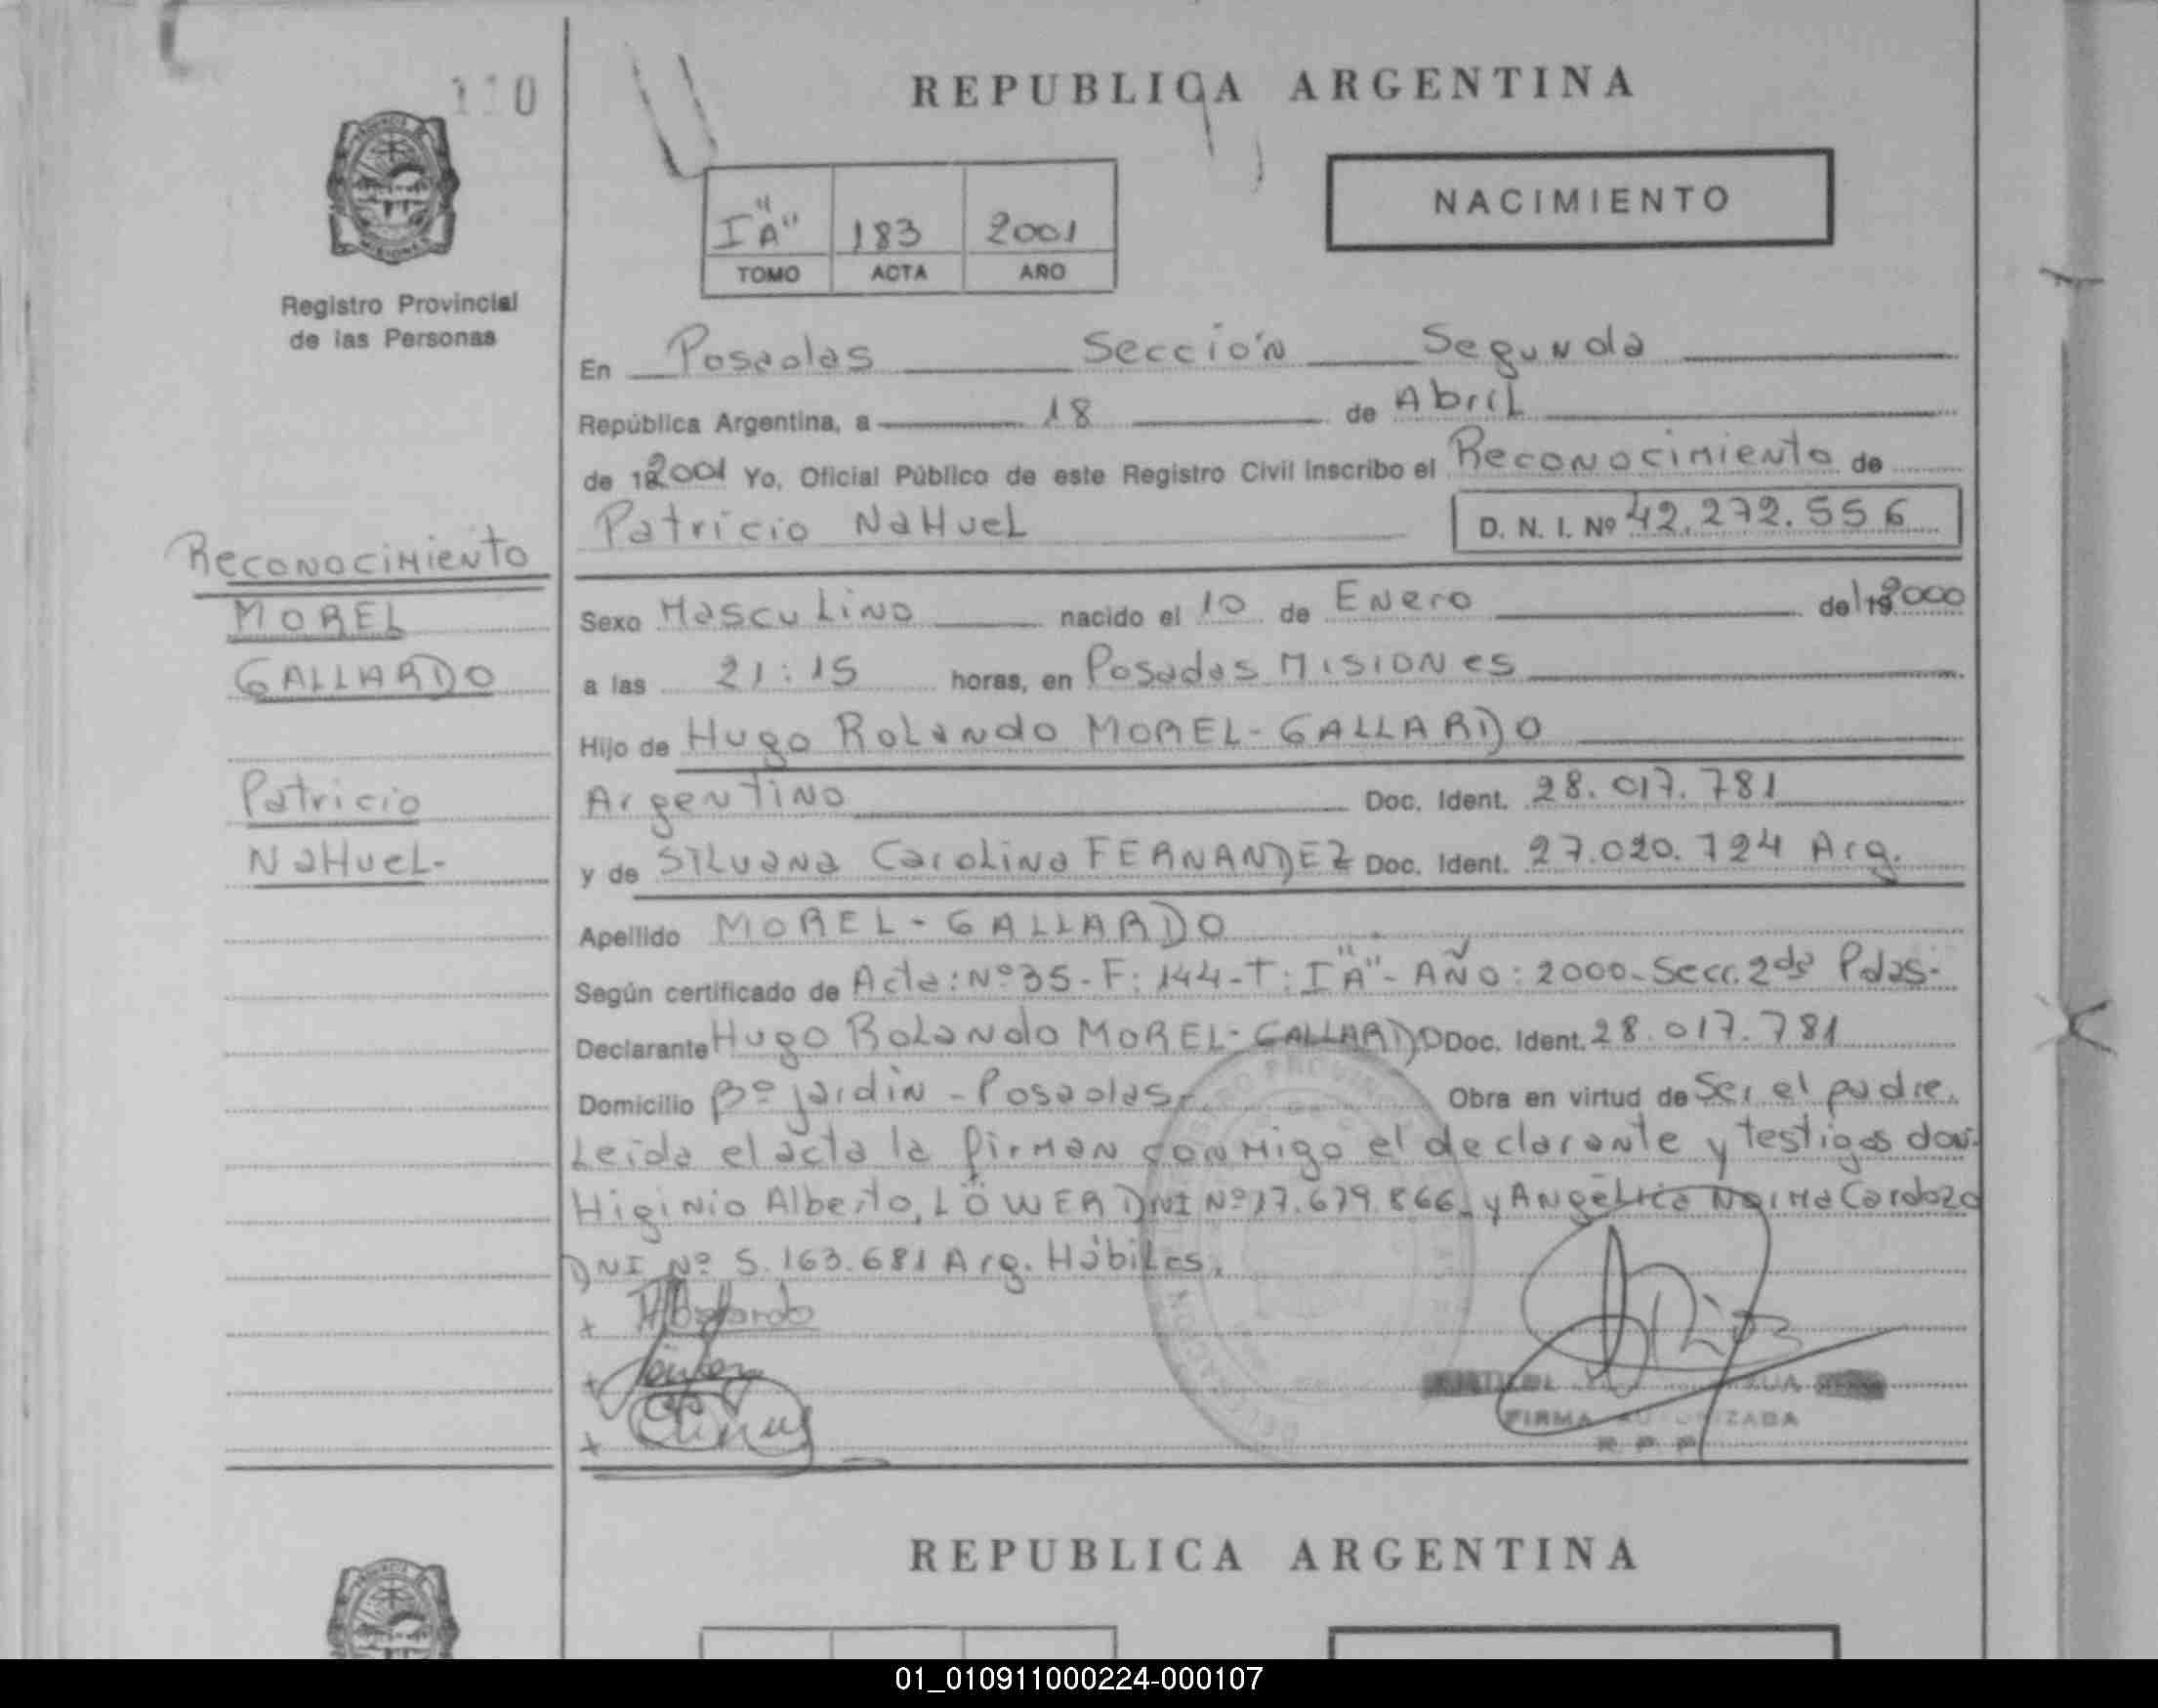 110
REPUBLICA ARGENTINA
NACIMIENTO
I "A" 183 2001
TOMO ACTA AÑO
Registro Provincial
de las Personas
En Posadas Sección Segunda
República Argentina, a 18 de Abril
de 192001 Yo, Oficial Público de este Registro Civil inscribo el Reconocimiento de
Patricio NaHuel D. N. I. Nº 42.272.556
Reconocimiento
MOREL
GALLARDO
Patricio
NaHuel-
Sexo Masculino nacido el 10 de Enero de 192000
a las 21:15 horas, en Posadas Misiones
Hijo de Hugo Rolando MOREL-GALLARDO
Argentino Doc. Ident. 28.017.781
y de Silvana Carolina FERNANDEZ Doc. Ident. 27.020.724 Arg.
Apellido MOREL-GALLARDO
Según certificado de Acta: Nº 35-F: 144-T: I "A"- AÑO: 2000-Secc. 2da Pdas-
Declarante Hugo Rolando MOREL-GALLARDO Doc. Ident. 28.017.781
Domicilio Bº jardin - Posadas- Obra en virtud de Ser el padre.
Leida el acta la firman conmigo el declarante y testigos don:
Higinio Alberto, LÖWER DNI Nº 17.679.866 y Angélica Norma Cardozo
DNI Nº 5.163.681 Arg. Hábiles.
FIRMA AUTORIZADA
R P P
REPUBLICA ARGENTINA
01_010911000224-000107